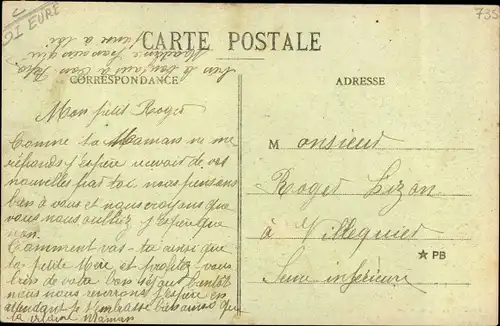 27 EURE
735
CARTE POSTALE
CORRESPONDANCE
ADRESSE
Mon petit Roger
Comme ta Maman ne me
réponds j'espère recevoir de vos
nouvelles par toi nous pensons
bien à vous et nous croyons que
vous nous oubliez j'espère que
non.
Comment vas-tu ainsi que
ta petite Mère et profitez vous
bien de votre bientôt
nous nous reverrons j'espère en
attendant je t'embrasse bien ainsi que
ta Maman
bonjour à ton Papa
Madame
pense à toi
Monsieur
Roger Lizon
à Villequier
★ PB
Seine inférieure